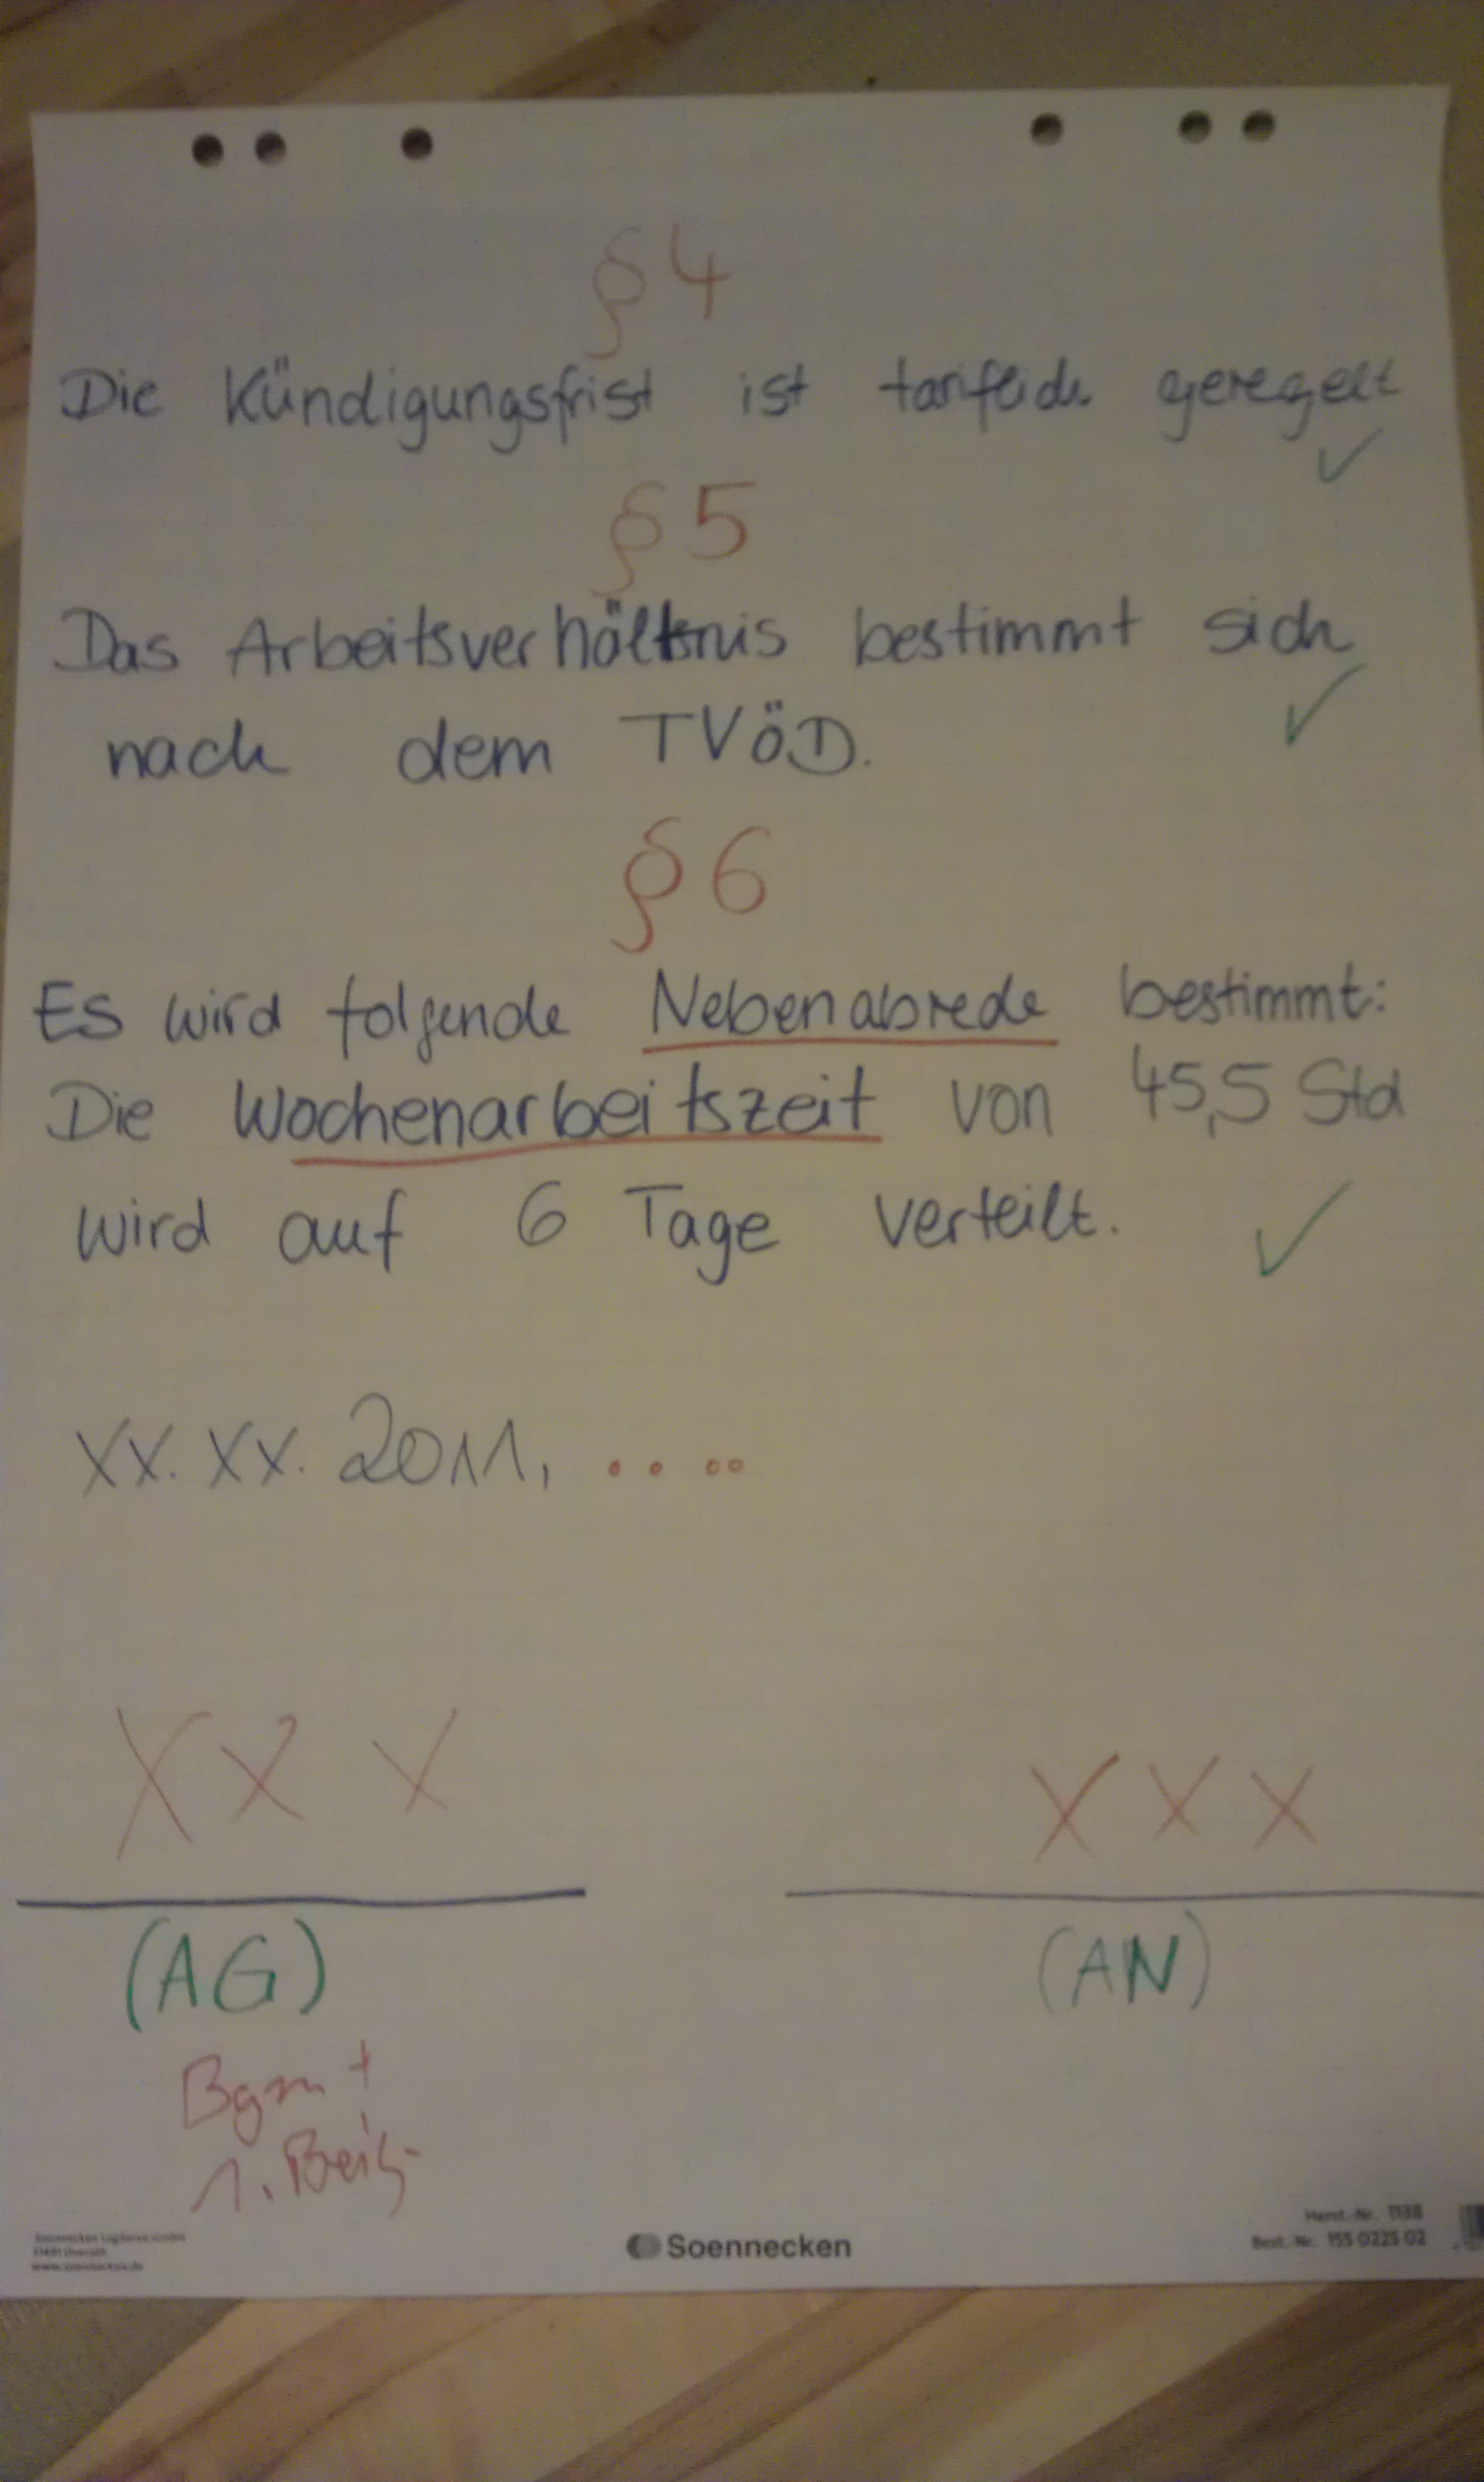 § 4
Die Kündigungsfrist ist tariflich geregelt
§ 5
Das Arbeitsverhältnis bestimmt sich
nach dem TVöD.
§ 6
Es wird folgende Nebenabrede bestimmt:
Die Wochenarbeitszeit von 45,5 Std
wird auf 6 Tage verteilt.
XX. XX. 2011, . . . .
X X X
X X X
(AG)
(AN)
Bgm +
1. Beig.
Soennecken
Herst.-Nr. 1138
Best.-Nr. 155 0225 02
www.soennecken.de